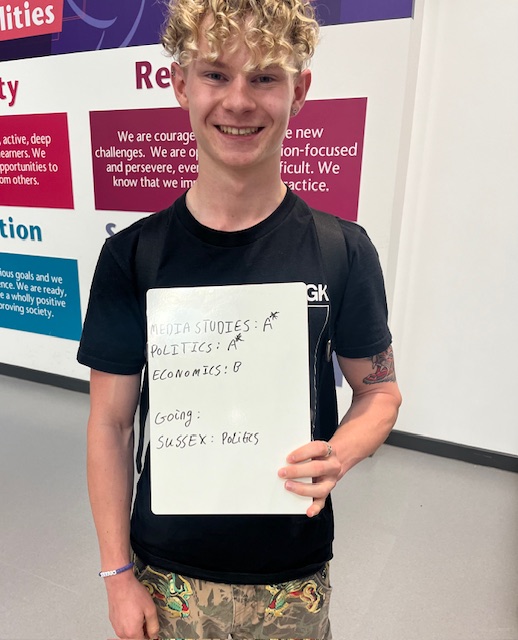 lities
ty
Re
active, deep
earners. We
opportunities to
om others.
We are courage new
challenges. We are op ion-focused
and persevere, even fficult. We
know that we im ractice.
tion
ious goals and we
ence. We are ready,
e a wholly positive
proving society.
GK
MEDIA STUDIES: A*
POLITICS: A*
ECONOMICS: B
Going:
SUSSEX: Politics